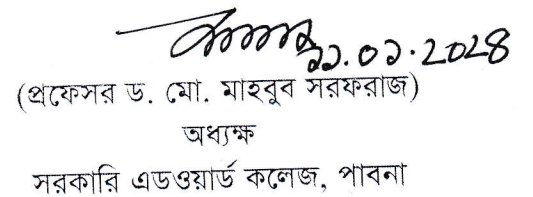 ২২.০১.২০২৪
(প্রফেসর ড. মো. মাহবুব সরফরাজ)
অধ্যক্ষ
সরকারি এডওয়ার্ড কলেজ, পাবনা